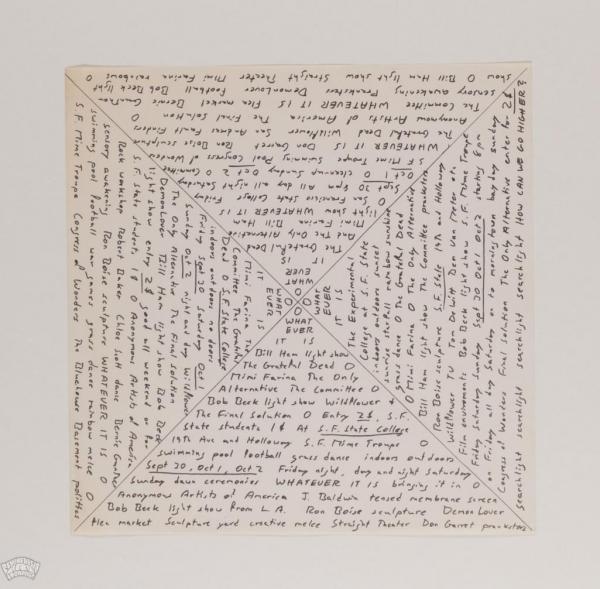 WHAT
EVER
IT IS
The Grateful Dead
And The Only Alternative
Mimi Farina Bill Ham
light show WHATEVER IT IS
San Francisco State College Friday
Sept 30 8pm All day all night Saturday
Oct 1 O cleanup Sunday Oct 2 O Committee
S.F. Mime Troupe Swimming Pool Congress of Wonders
WHATEVER IT IS Don Garret Ron Boise sculpture
The Grateful Dead Wildflower San Andreas Fault Finders
Anonymous Artists of America The Final Solution O
The Committee WHATEVER IT IS Flea market Bernie
sensory awakening Pranksters DemonLover football Bob Beck light
show O Bill Ham light show Straight Theater Mimi Farina rainbows O
WHAT
EVER
IT IS
The Experimental
College at S.F. State
indoors outdoors sunset
sunrise starfall rainbow sunshine
grass dance O The Grateful Dead
O Mimi Farina O The Only Alternative
Bill Ham light show The Committee pranksters
Ron Boise sculpture S.F. State 19th and Holloway
Wildflower TV Tom DeWitt Don Van Meter etc
Film environments Bob Beck light show S.F. Mime Troupe
O Friday Saturday Sunday Sept 30 Oct 1 Oct 2 starting 8 pm
on Friday all day Saturday on to morningtown bay day sunday
Congress of Wonders Final Solution The Only Alternative enter for 2$
searchlight searchlight searchlight searchlight HOW CAN WE GO HIGHER?
WHAT
EVER
IT IS
Bill Ham light show
The Grateful Dead O
Mimi Farina The Only
Alternative The Committee O
Bob Beck light show Wildflower &
The Final Solution O Entry 2$, S.F.
State students 1$ At S.F. State College
19th Ave and Holloway S.F. Mime Troupe O
swimming pool football grass dance indoors outdoors
Sept 30, Oct 1, Oct 2 Friday night, day and night Saturday
Sunday dawn ceremonies WHATEVER IT IS bringing it in O
Anonymous Artists of America J. Baldwin tensed membrane screen
Bob Beck light show from L.A. Ron Boise sculpture Demon Lover
flea market Sculpture yard creative melee Straight Theater Don Garret pranksters
WHAT
EVER
IT IS
Mimi Farina The
Committee The Grateful
Dead O S.F. State College
indoors outdoors no doors
Friday Sept 30 Saturday Oct 1
Sunday Oct 2 night and day Wildflower
The Only Alternative The Final solution
DemonLover Bill Ham light show Bob Beck
light show entry 2$ good all weekend or for
S.F. State students 1$ O Anonymous Artists of America
Rock workshop Robert Baker Chloe Scott dance Bernie
sensory awakening Ron Boise sculpture WHATEVER IT IS O
swimming pool football war games grass dance rainbow melee O
S.F. Mime Troupe Congress of Wonders The Bluehouse Basement politics